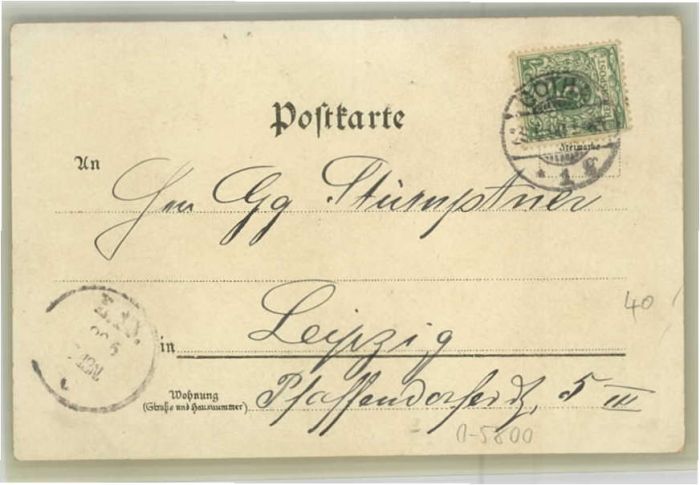 GOTHA
* 1 c
Postkarte
Freimarke
An
Hrn Gg Sturmptner
40
in Leipzig
Wohnung
(Straße und Hausnummer)
Pfaffendorferstr, 5 III
n-5800